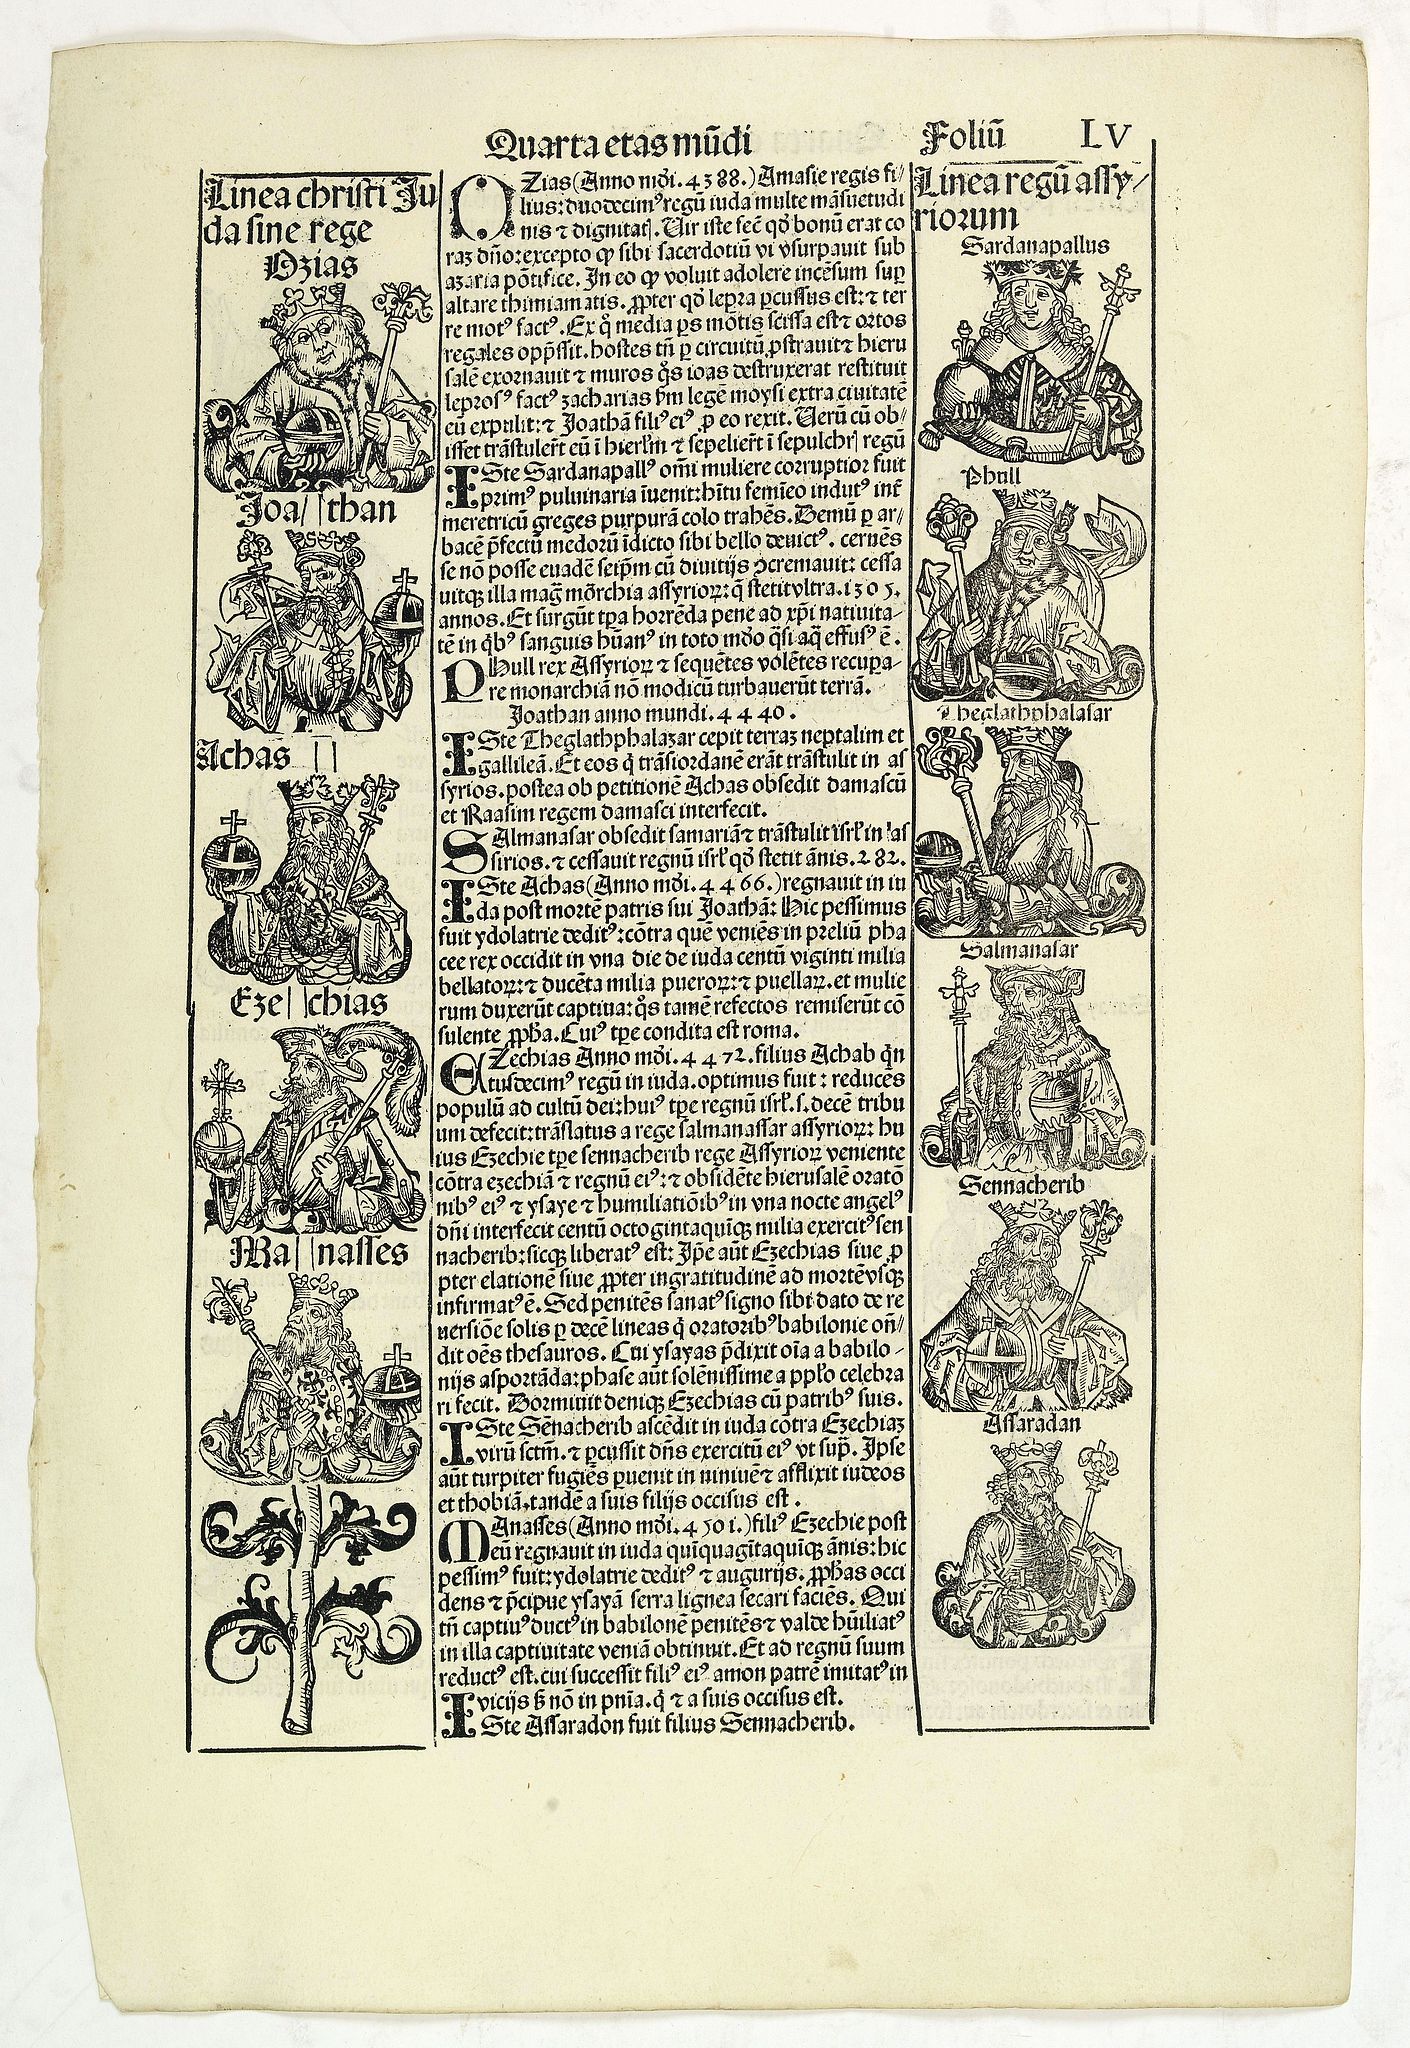 Quarta etas mūdi
Foliū LV
Linea christi Ju
da sine rege
Ozias
Joa than
Achas
Eze chias
Ma nasses
OZias (Anno mūdi. 4388.) Amasie regis fi-
lius: duodecimꝰ regū iuda multe māsuetudi
nis ⁊ dignitatꝭ. Uir iste fec̄ qd̓ bonū erat co
raꝫ dn̄o: excepto ꝙ sibi sacerdotiū vi vsurpauit sub
azaria pōtifice. In eo ꝙ voluit adolere incēsum suꝑ
altare thimiamatis. ꝓpter qd̓ lepra ꝑcussus est: ⁊ ter
re motꝰ factꝰ. Ex q̊ media ꝑs mōtis scissa est ⁊ ortos
regales opp̄ssit. hostes tn̄ ꝑ circuitū ꝓstrauit ⁊ hieru
salē exornauit ⁊ muros q̊s ioas destruxerat restituit
leprosꝰ factꝰ zacharias ẜm legē moysi extra ciuitatē
eū expulit: ⁊ Joathā filiꝰ eiꝰ ꝓ eo rexit. Uerū cū ob-
isset trāstuler̄t eū ī hierlm̄ ⁊ sepelier̄t ī sepulchrꝭ regū
ISte Sardanapallꝰ om̄i muliere corruptior fuit
primꝰ puluinaria īuenit: hītu femīeo indutꝰ int̄
meretricū greges purpurā colo trahēs. Demū ꝑ ar-
bacē p̄fectū medorū īdicto sibi bello deuictꝰ. cernēs
se nō posse euadē seip̄m cū diuitijs ↄcremauit: cessa
uitqꝫ illa mag̅ mōrchia assyrioꝝ: q̄ stetit vltra. 1305.
annos. Et surgūt tp̄a horrēda pene ad xp̄i natiuita-
tē in qb̓ꝰ sanguis hūanꝰ in toto mūdo q̄si aq̄ effusꝰ ē.
PHull rex Assyrioꝝ ⁊ sequētes volētes recupa-
re monarchiā nō modicū turbauerūt terrā.
Joathan anno mundi. 4440.
ISte Theglathphalazar cepit terraꝫ neptalim et
gallileā. Et eos q̄ trāsiordanē erāt trāstulit in as
syrios. postea ob petitionē Achas obsedit damascū
et Raasim regem damasci interfecit.
SAlmanasar obsedit samariā ⁊ trāstulit isrl̄ in as
sirios. ⁊ cessauit regnū isrl̄ qd̓ stetit ānis. 282.
ISte Achas (Anno mūdi. 4466.) regnauit in iu
da post mortē patris sui Joathā: Hic pessimus
fuit ydolatrie deditꝰ: cōtra quē veniēs in preliū pha
cee rex occidit in vna die de iuda centū viginti milia
bellatoꝝ: ⁊ ducēta milia pueroꝝ: ⁊ puellaꝝ. et mulie
rum duxerūt captiua: q̊s tamē refectos remiserūt cō
sulente ꝓph̄a. Cuiꝰ tp̄e condita est roma.
EZechias Anno mūdi. 4472. filius Achab qn̄
tusdecimꝰ regū in iuda. optimus fuit: reducēs
populū ad cultū dei: huiꝰ tp̄e regnū isrl̄. s. decē tribu
um defecit: trāslatus a rege salmanassar assyrioꝝ: hu
ius Ezechie tp̄e sennacherib rege Assyrioꝝ veniente
cōtra ezechiā ⁊ regnū eiꝰ: ⁊ obsidēte hierusalē oratō
nibꝰ eiꝰ ⁊ ysaye ⁊ humiliatiōibꝰ in vna nocte angelꝰ
dn̄i interfecit centū octogintaquiqꝫ milia exercitꝰ sen
nacherib: sicqꝫ liberatꝰ est: Jp̄e aūt Ezechias siue ꝓ
pter elationē siue ꝓpter ingratitudinē ad mortē vsqꝫ
infirmatꝰ ē. Sed penitēs sanatꝰ signo sibi dato de re
uersiōe solis ꝑ decē lineas q̄ oratoribꝰ babilonie on̄-
dit oēs thesauros. Cui ysayas p̄dixit oīa a babilo-
nijs asportāda: phase aūt solēnissime a pplo̅ celebra
ri fecit. Dormiuit deniqꝫ Ezechias cū patribꝰ suis.
ISte Sēnacherib ascēdit in iuda cōtra Ezechiaꝫ
virū sctm̄. ⁊ ꝑcussit dn̄s exercitū eiꝰ vt sup̄. Ipse
aūt turpiter fugiēs ꝑuenit in niniuē ⁊ afflixit iudeos
et thobiā, tandē a suis filijs occisus est.
MAnasses (Anno mūdi. 4501.) filiꝰ Ezechie post
eū regnauit in iuda quīquagītaquīqꝫ ānis: hic
pessimꝰ fuit: ydolatrie deditꝰ ⁊ augurijs. ꝓph̄as occi
dens ⁊ p̄cipue ysayā serra lignea secari faciēs. Qui
tn̄ captiuꝰ ductꝰ in babilonē penitēs ⁊ valde hūiliatꝰ
in illa captiuitate veniā obtinuit. Et ad regnū suum
reductꝰ est. cui successit filiꝰ eiꝰ amon patrē imitatꝰ in
vicijs sꝫ nō in pnīa. q̄ ⁊ a suis occisus est.
ISte Assaradon fuit filius Sennacherib.
Linea regū assy-
riorum
Sardanapallus
Phull
Theglathphalasar
Salmanasar
Sennacherib
Assaradan